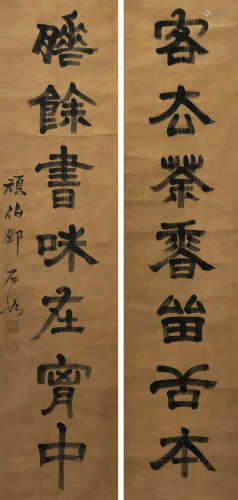 客去茶香留舌本
睡餘書味在胸中
頑伯鄧石如